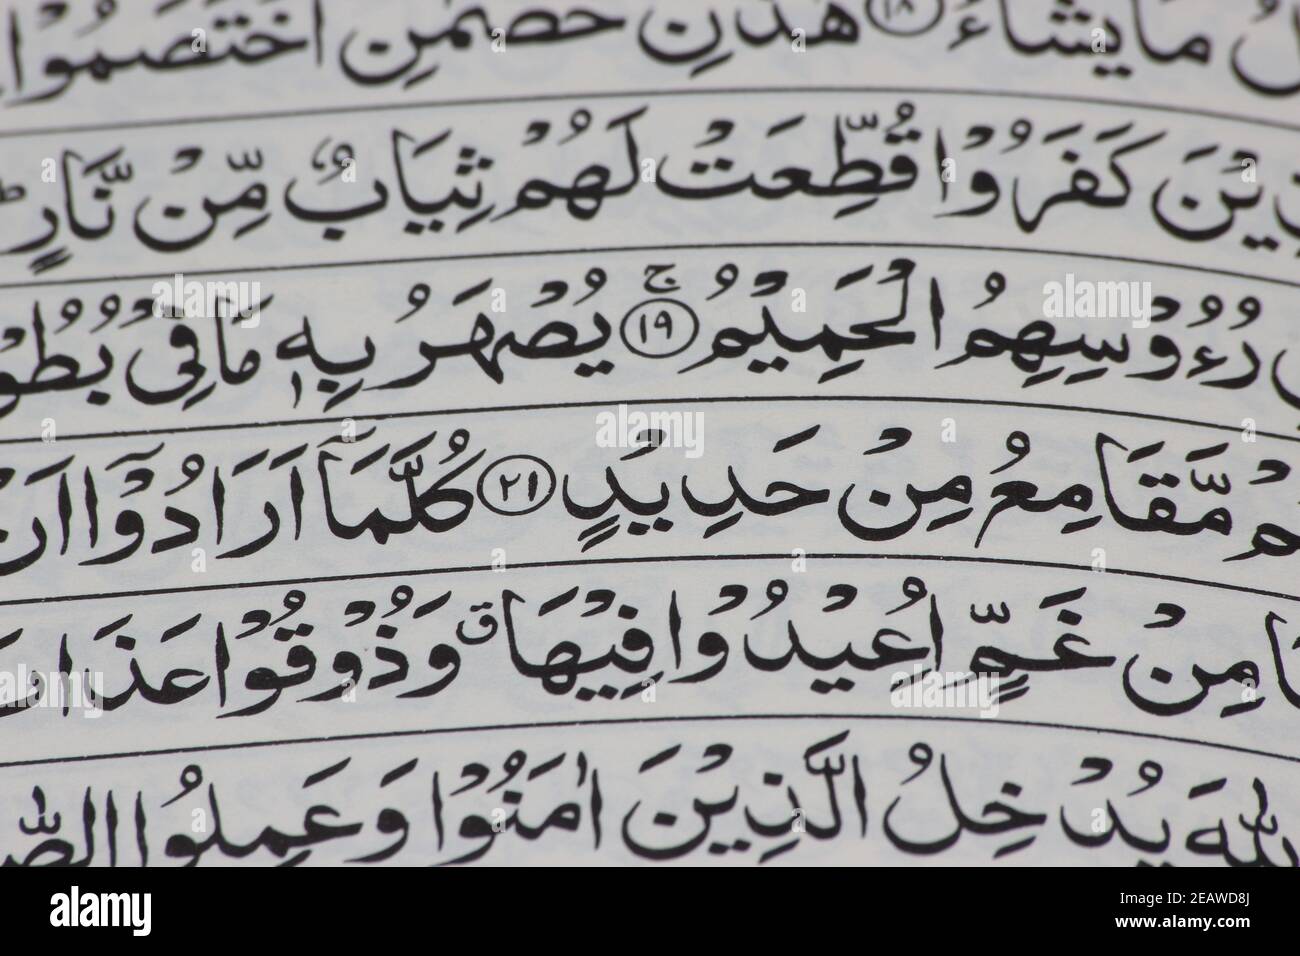 مَا يَشَآءُ ۝١٨ هٰذٰنِ خَصْمٰنِ اخْتَصَمُوْا
كَفَرُوْا قُطِّعَتْ لَهُمْ ثِيَابٌ مِّنْ نَّارٍ ؕ
رُءُوْسِهِمُ الْحَمِيْمُ ۝١٩ ج يُصْهَرُ بِهٖ مَا فِيْ بُطُوْ
مَّقَامِعُ مِنْ حَدِيْدٍ ۝٢١ كُلَّمَاۤ اَرَادُوْۤا اَنْ
مِنْ غَمٍّ اُعِيْدُوْا فِيْهَا ۗ وَذُوْقُوْا عَذَابَ
اللّٰهَ يُدْخِلُ الَّذِيْنَ اٰمَنُوْا وَعَمِلُوا الصّٰ
alamy
Image ID: 2EAWD8J
www.alamy.com